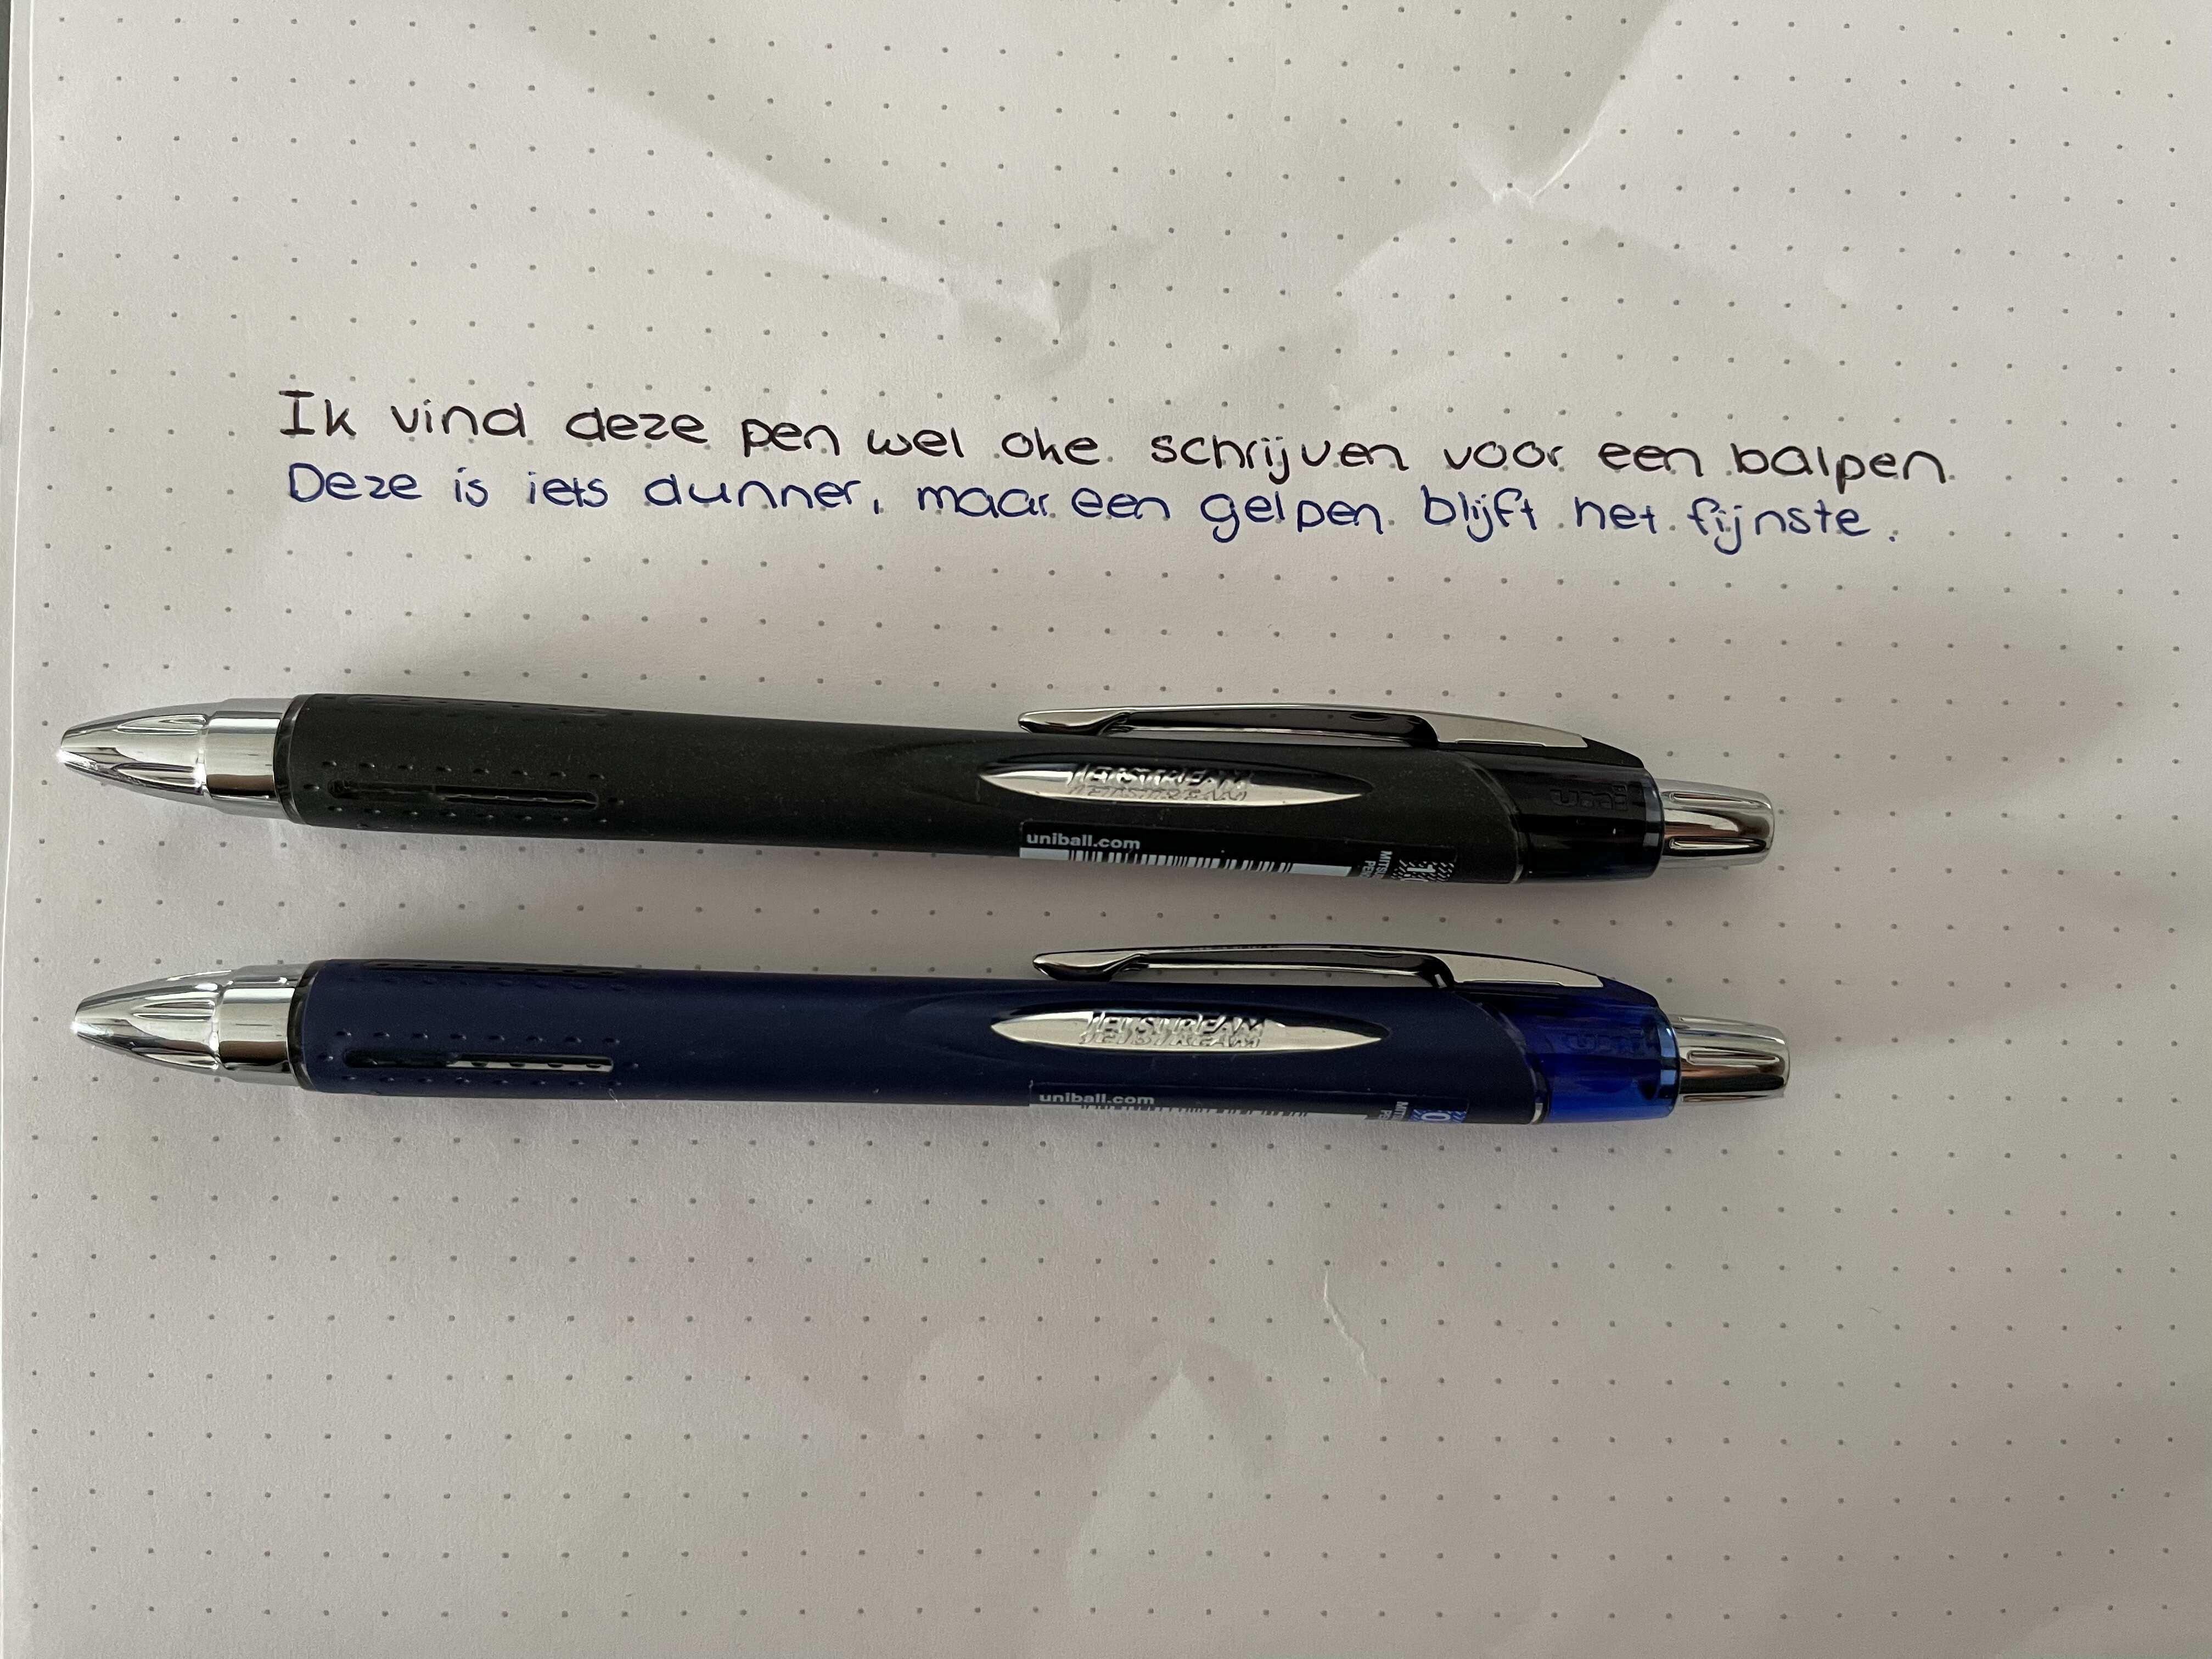 Ik vind deze pen wel oke schrijven voor een balpen.
Deze is iets dunner, maar een gelpen blijft het fijnste.
JETSTREAM
uni
uniball.com
JETSTREAM
uni
uniball.com